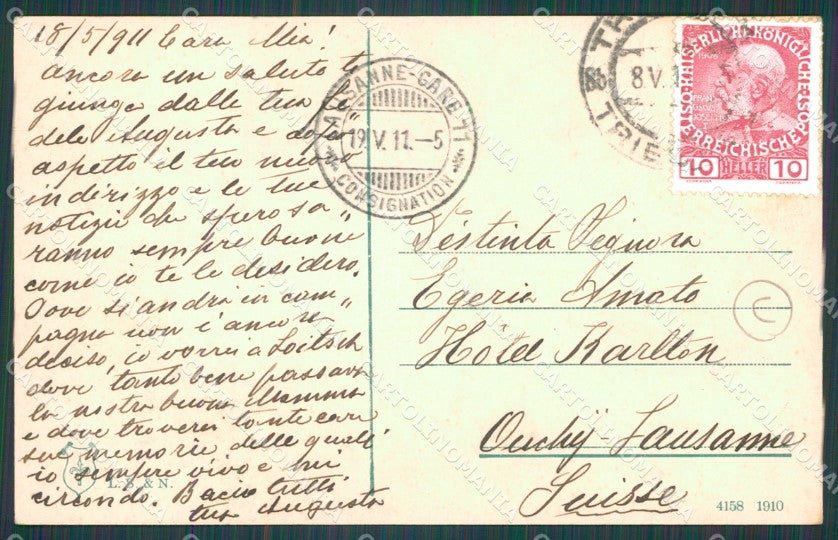 18/5/911 Cara Mia!
ancora un saluto ti
giunge dalle tua fe
dele Augusta e dopo
aspetto il tuo nuovo
indirizzo e le tue
notizie che spero sa„
ranno sempre buone
come io te le desidero.
Dove si andrà in cam„
pagna non è ancora
deciso, io vorrei a Loitsch
dove tanto bene passava
la nostra buona Mamma
e dove troverei tante care
sue memorie delle quali
io sempre vivo e mi
circondo. Baci a tutti,
tua Augusta
L. S. & N.
LAUSANNE-GARE 11
19.V.11.-5
CONSIGNATION
TRIEST
8.V.1
KAISERLICHE KÖNIGLICHE ÖSTERREICHISCHE POST
1908
10 HELLER 10
Distinta Signora
Egeria Amato
Hôtel Karlton
Ouchy-Lausanne
Suisse
4158 1910
CARTOLINOMANIA